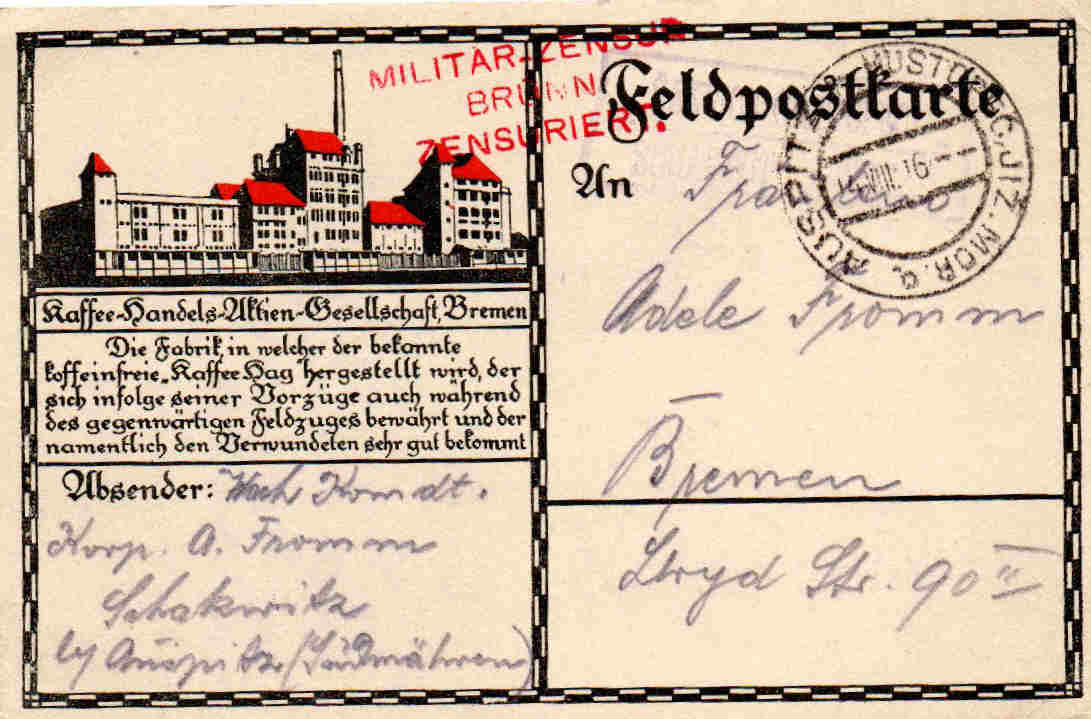 MILITÄR-ZENSUR
BRÜNN
ZENSURIERT.
Feldpostkarte
An
Fräulein
Adele Fromm
Bremen
Lloyd Str. 90 II
Kaffee-Handels-Aktien-Gesellschaft, Bremen
Die Fabrik, in welcher der bekannte
koffeinfreie „Kaffee Hag" hergestellt wird, der
sich infolge seiner Vorzüge auch während
des gegenwärtigen Feldzuges bewährt und der
namentlich den Verwundeten sehr gut bekommt
Absender: Wach Komdt.
Korp. A. Fromm
Schakwitz
by Auspitz (Südmähren)
AUSPITZ
MOR.